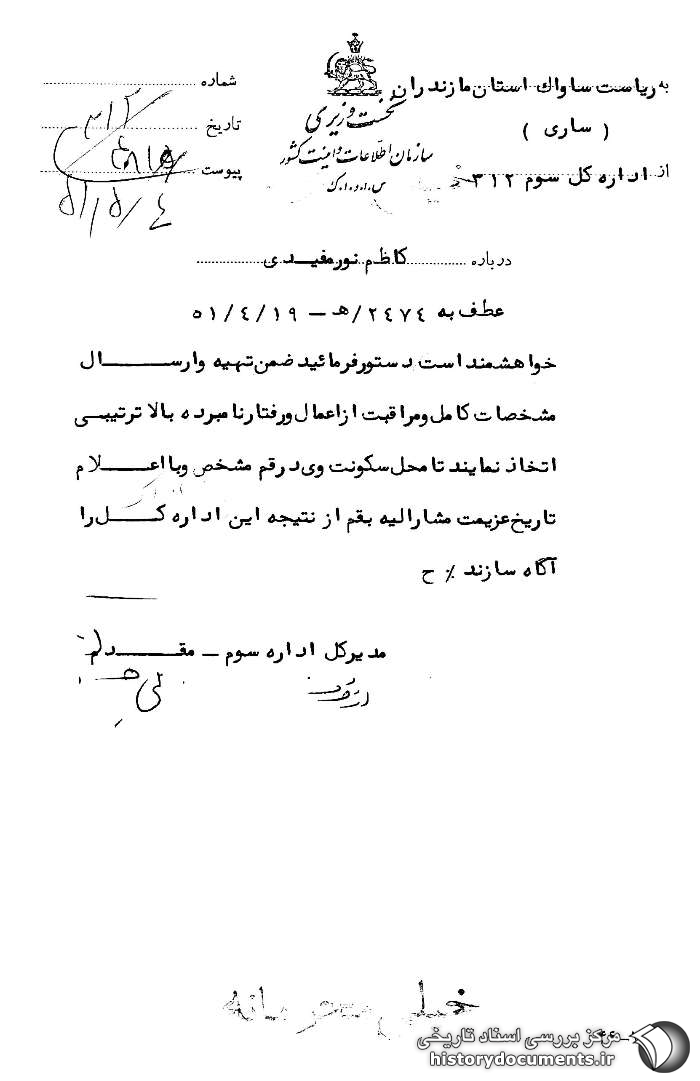 به ریاست ساواک استان مازندران
( ساری )
از اداره کل سوم ۳۱۲
نخست وزیری
سازمان اطلاعات و امنیت کشور
س.ا.و.ا.ک
شماره
تاریخ
پیوست
۳۱۲
۵۱/۵/۴
درباره کاظم نورمفیدی
عطف به ۲۴۷۴/هـ – ۵۱/۴/۱۹
خواهشمند است دستور فرمائید ضمن تهیه و ارسال
مشخصات کامل و مراقبت از اعمال و رفتار نامبرده بالا ترتیبی
اتخاذ نمایند تا محل سکونت وی در قم مشخص و با اعلام
تاریخ عزیمت مشارالیه بقم از نتیجه این اداره کل را
آگاه سازند ٪ ح
مدیرکل اداره سوم – مقدم
خیلی محرمانه
مرکز بررسی اسناد تاریخی
historydocuments.ir